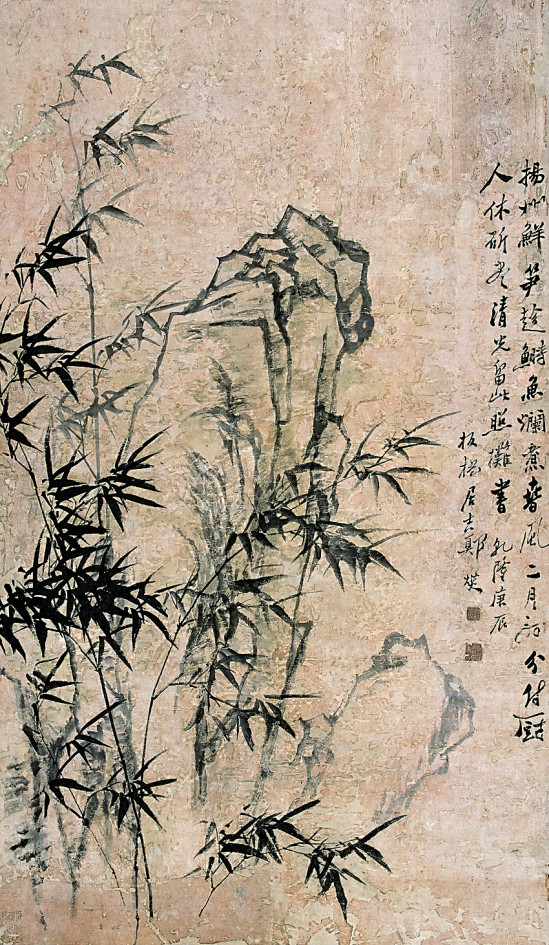 揚州鮮笋趁鰣魚爛煮春風二月初分付廚
人休斫尽清光留此照攤書 乾隆庚辰
板橋居士鄭燮